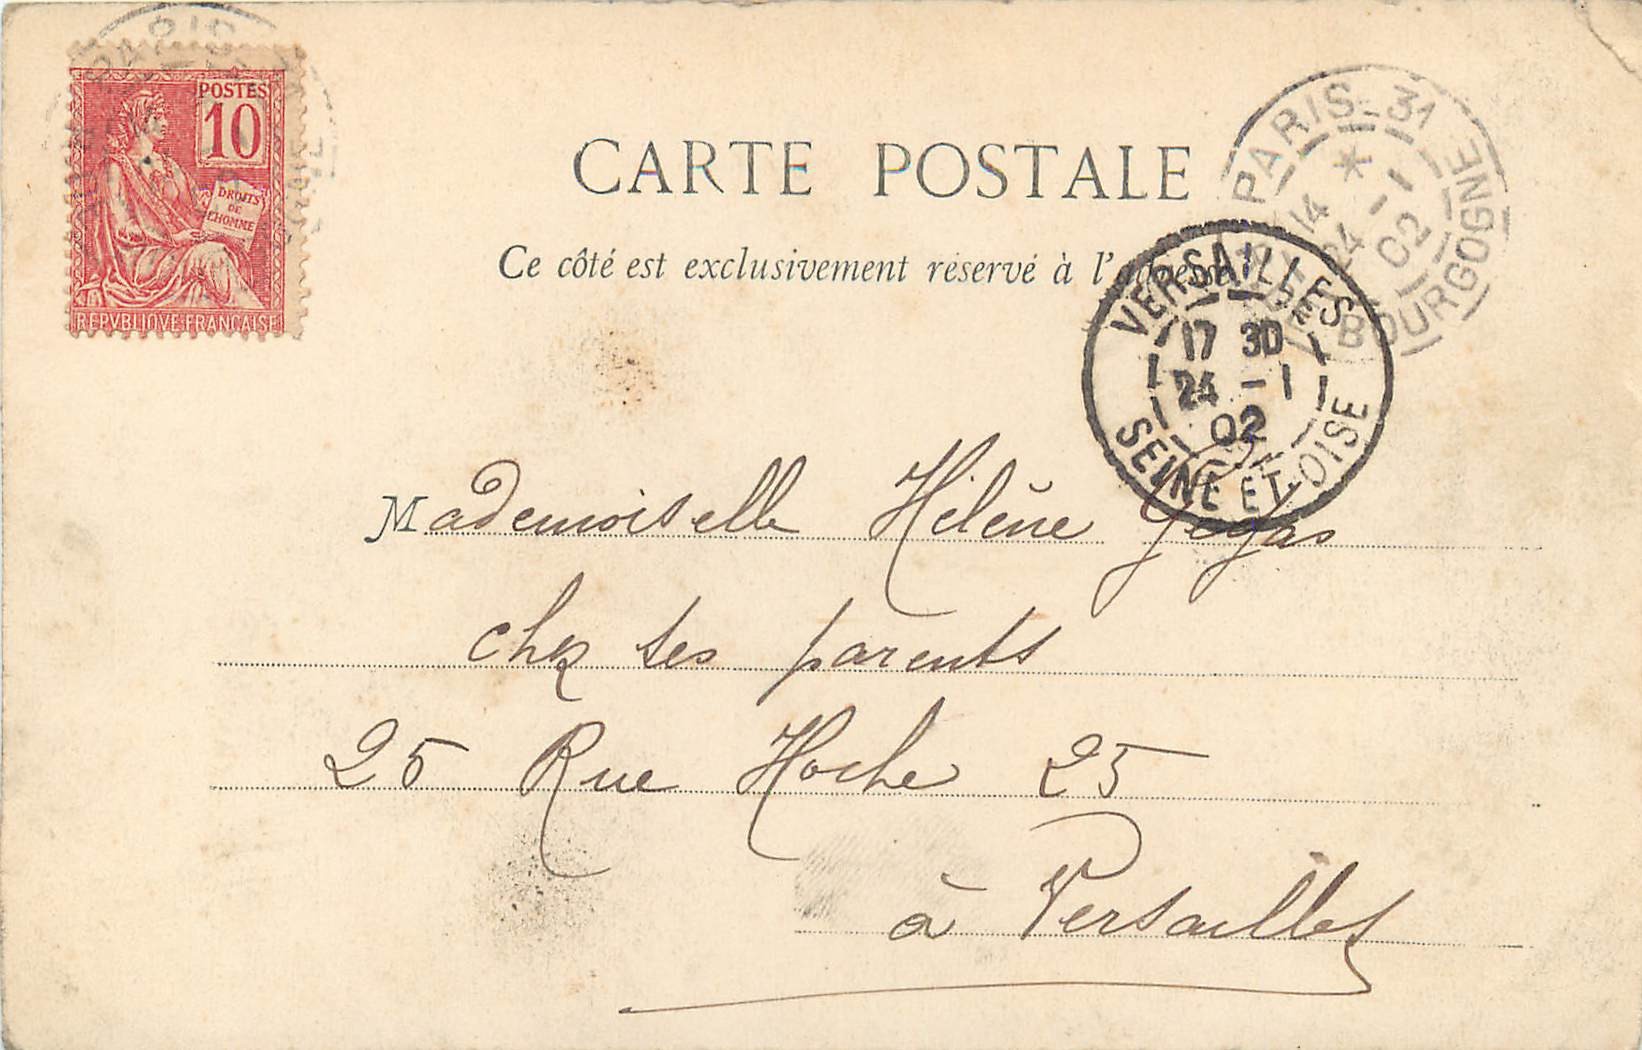 POSTES
10
DROITS
DE
L'HOMME
REPVBLIQVE FRANÇAISE
PARIS
CARTE POSTALE
Ce côté est exclusivement réservé à l'adresse
PARIS_31
14
24 - 1
02
BOURGOGNE
VERSAILLES
17 30
24 - 1
02
SEINE ET OISE
Mademoiselle Hélène
chez ses parents
25 Rue Hoche 25
à Versailles